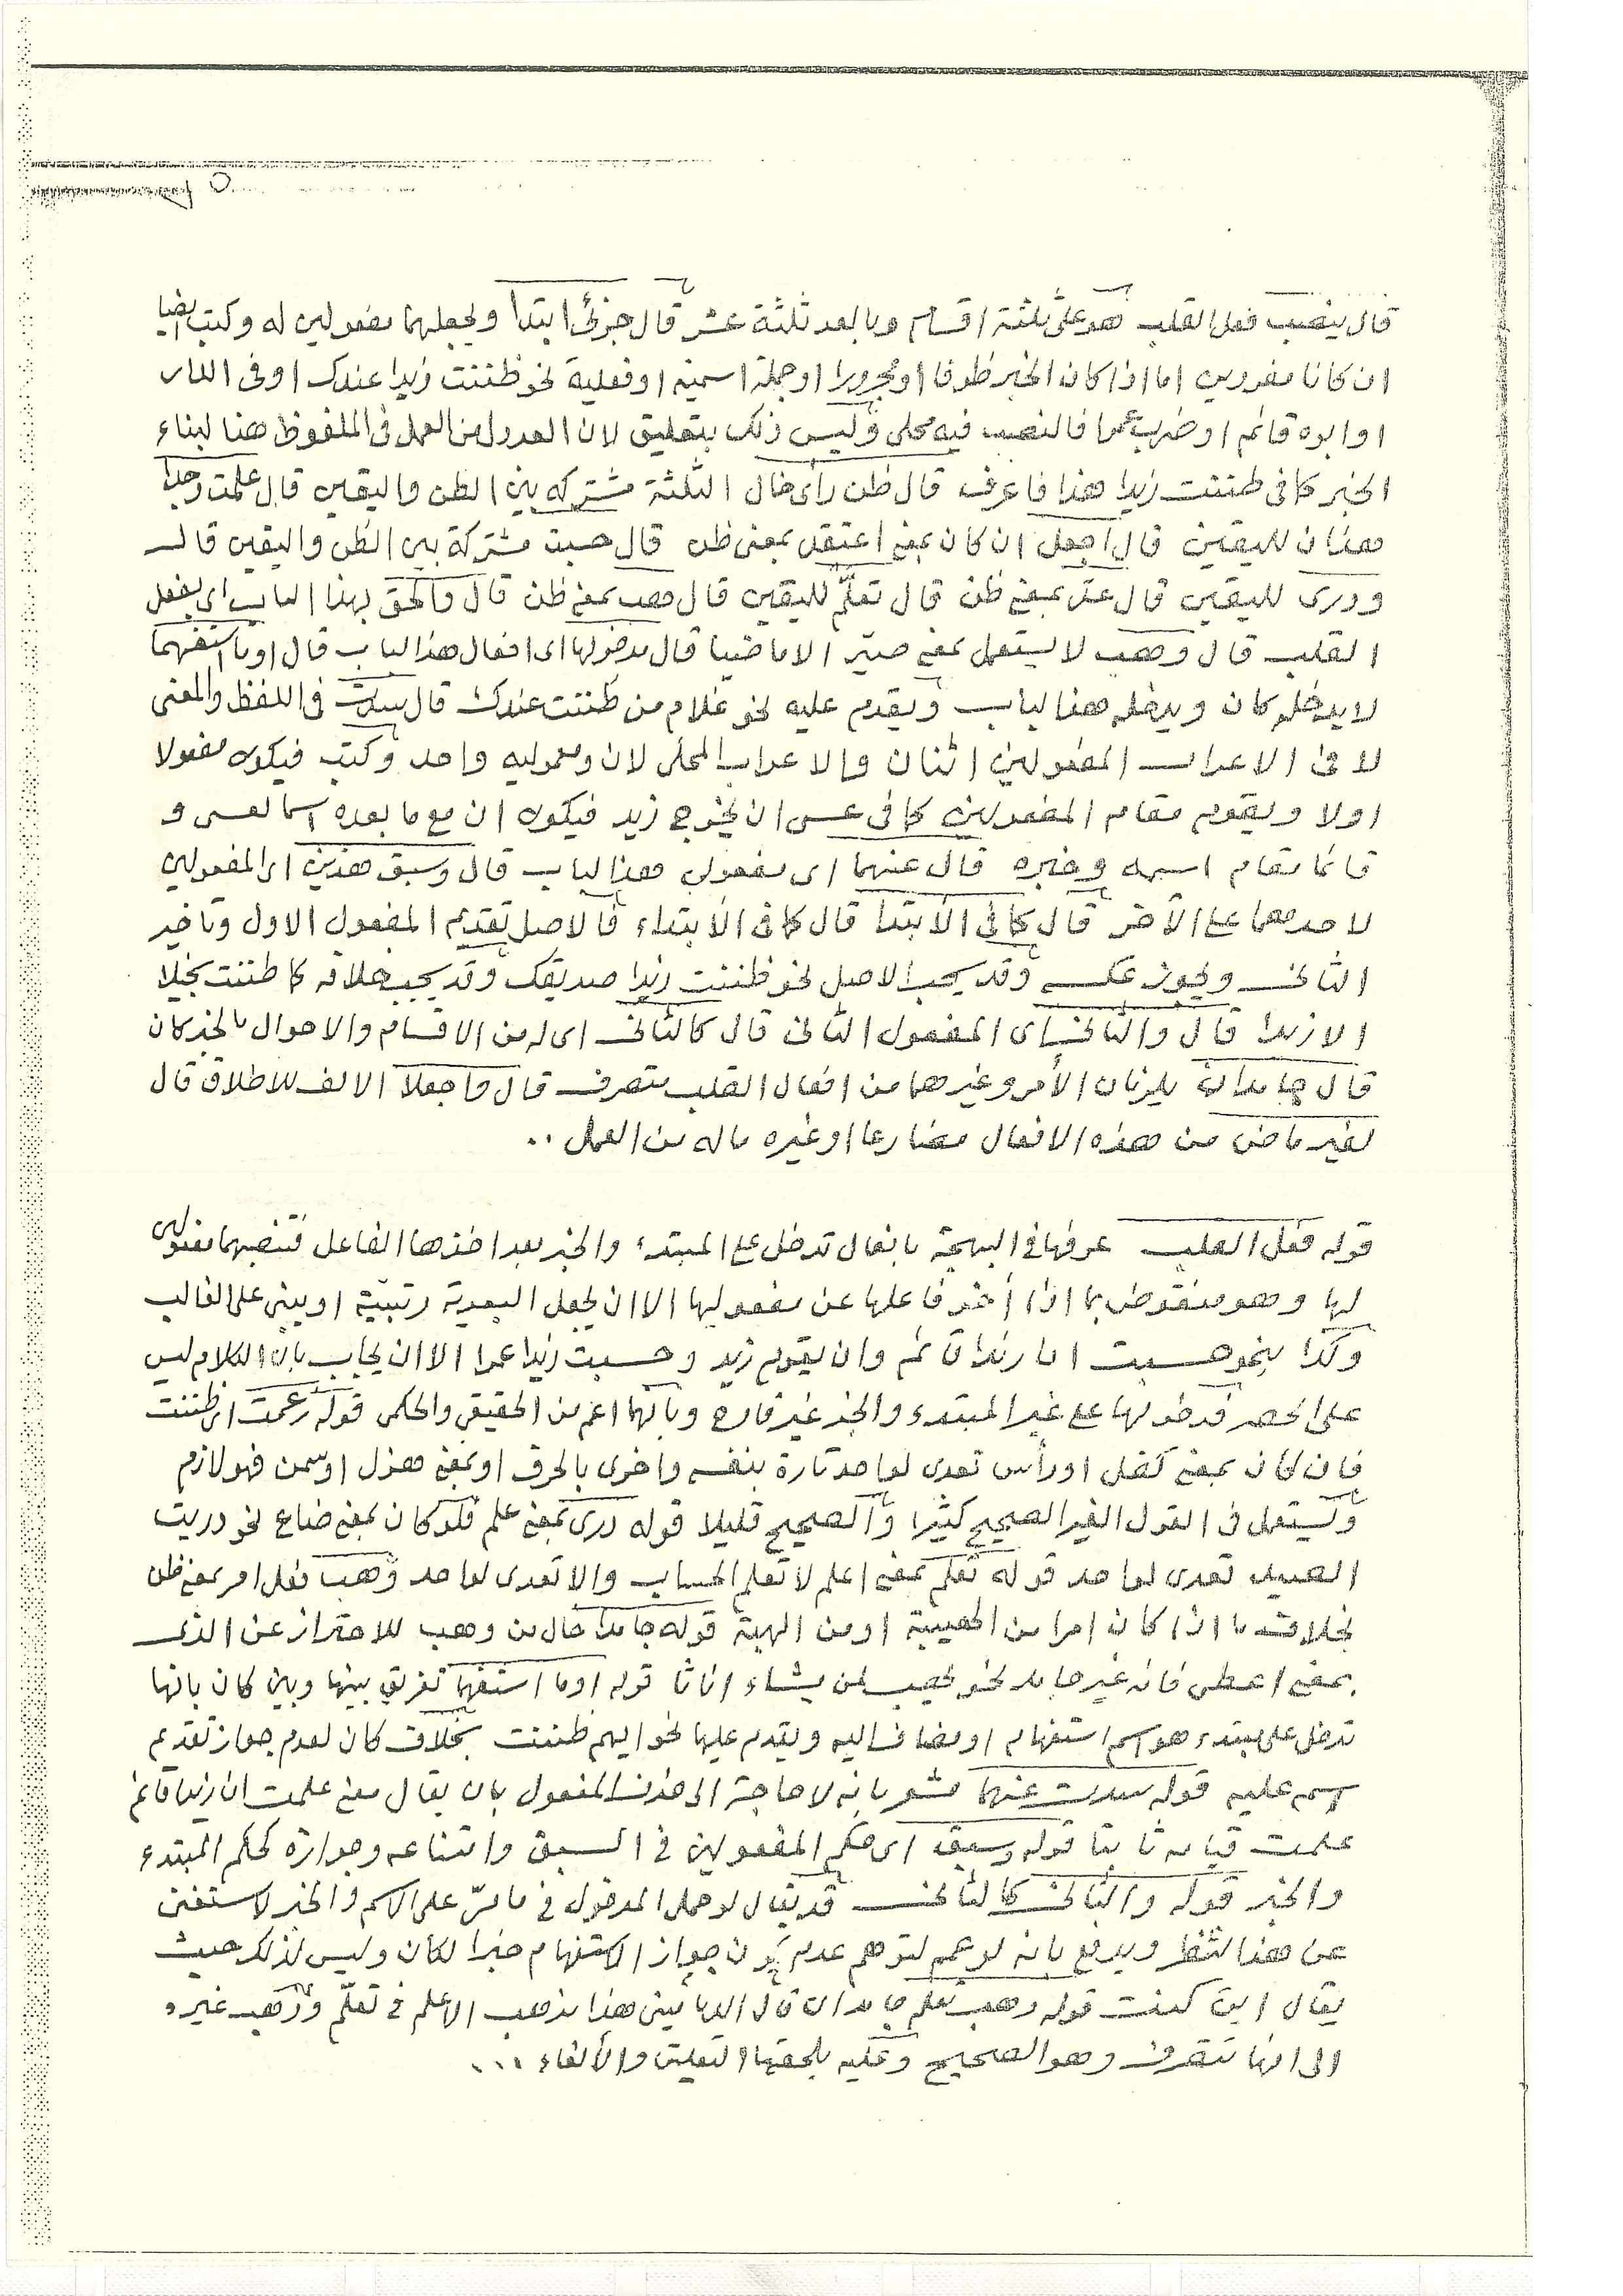 قال ينصب فعل القلب فهو على ثلثة اقسام وما بعد ثلثة عشر قال جزئى ابتدا ويجعلهما مفعولين له وكتب ايضا
ان كانا مفردين اما اذا كان الخبر ظرفا او مجرورا او جملة اسمية او فعلية نحو ظننت زيدا عندك او فى الدار
او ابوه قائم او ضرب عمرا فالنصب فيه محلى وليس ذلك بتعليق لان العدول من العمل فى الملفوظ هنا لبناء
الخبر كما فى ظننت زيدا هذا فاعرف قال ظن رأى خال الثلثة مشتركه بين الظن واليقين قال علمت وجدا
هذان لليقين قال اجعل ان كان بمعنى اعتقد بمعنى ظن قال حسبت مشتركة بين الظن واليقين قال
ودرى لليقين قال عد بمعنى ظن قال تعلّم لليقين قال وهب بمعنى ظن قال والحق بهذا الباب اى بفعل
القلب قال وهب لا يستعمل بمعنى صيّر الا ماضيا قال مدخولها اى افعال هذا الباب قال او ما استفهما
لا يدخله كان ويدخله هذا الباب ويقدم عليه نحو غلام من ظننت عندك قال سدّت فى اللفظ والمعنى
لا فى الاعراب المفعولين اثنان والاعراب المحلى لان ومعموليه واحد وكتب فيكون مفعولا
اولا ويقوم مقام المفعولين كما فى عسى ان يخرج زيد فيكون ان مع ما بعده اسما لعسى و
قائما مقام اسمه وخبره قال عنهما اى مفعولى هذا الباب قال وسبق هذين اى المفعولين
لاحدهما على الآخر قال كما فى الابتدا قال كما فى الابتداء فالاصل تقديم المفعول الاول وتاخير
الثانى ويجوز عكسه وقد يجب الاصل نحو ظننت زيدا صديقك وقد يجب خلافه كما ظننت بخيلا
الا زيدا قال والثانى اى المفعول الثانى قال كالثانى اى له من الاقسام والاحوال ما لخبر كان
قال جامدان يلزمان الأمر وغيرهما من افعال القلب متصرف قال واجعلا الالف للاطلاق قال
لغير ماض من هذه الافعال مضارعا او غيره ما له من العمل ..

قوله فعل القلب عرفها فى البهجة بافعال تدخل على المبتدء والخبر بعد اخذها الفاعل فتنصبهما مفعولين
لها وهو منقوض بما اذا أخر فاعلها عن مفعوليها الا ان يجعل البعدية رتبيّة او يبنى على الغالب
وكذا بنحو حسبت ان زيدا قائم وان يقوم زيد وحسبت زيدا عمرا الا ان يجاب بان الكلام ليس
على الحصر فدخولها على غير المبتدء والخبر غير قادح وبانهما اعم من الحقيقى والحكمى قوله زعمت اى ظننت
فان كان بمعنى كفل او رأس تعدى لواحد تارة بنفسه واخرى بالحرف او بمعنى هزل او سمن فهو لازم
ويستعمل فى القول الغير الصحيح كثيرا والصحيح قليلا قوله درى بمعنى علم فلو كان بمعنى ضاع نحو دريت
الصيد تعدى لواحد قوله تعلم بمعنى اعلم لا تعلم الحساب والا تعدى لواحد وهب فعل امر بمعنى ظن
بخلاف ما اذا كان امرا من الهيبة او من الهبة قوله جامدا حال من وهب للاحتراز عن الذى
بمعنى اعطى فانه غير جامد نحو يهب لمن يشاء اناثا قوله او ما استفهما تفريق بينها وبين كان بانها
تدخل على مبتدء هو اسم استفهام او مضاف اليه ويقدم عليها نحو ايهم ظننت بخلاف كان لعدم جواز تقديم
اسمه عليه قوله سدت عنهما مشعر بانه لا حاجة الى حذف المفعول بان يقال معنى علمت ان زيدا قائم
علمت قيامه ثابتا قوله وسبق اى حكم المفعولين فى السبق وامتناعه وجوازه كحكم المبتدء
والخبر قوله والثانى كالثانى قد يقال لو حمل المدخول فى ما مرّ على الاسم والخبر لاستغنى
عن هذا الشطر ويدفع بانه لو عمم لتوهم عدم جواز الاستفهام خبرا لكان وليس كذلك حيث
يقال اين كنت قوله وهب تعلم جامدان قال الدمامينى هذا مذهب الاعلم فى تعلّم وذهب غيره
الى انها تتصرف وهو الصحيح وعليه يلحقها التعليق والألغاء ...